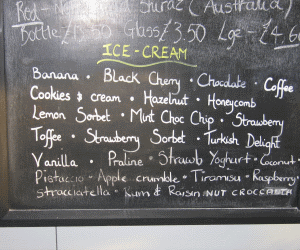 Red - Shiraz (Australia)
Bottle Glass £3.50 Lge - £4.60
ICE-CREAM
Banana · Black Cherry · Chocolate · Coffee
Cookies & cream · Hazelnut · Honeycomb
Lemon Sorbet · Mint Choc Chip · Strawberry
Toffee · Strawberry Sorbet · Turkish Delight
Vanilla · Praline · Strawb Yoghurt · Coconut
Pistaccio · Apple crumble · Tiramisu · Raspberry
stracciatella · Rum & Raisin NUT CROCCASTA